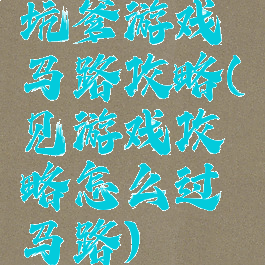 坑爹游戏
马路攻略(
见游戏攻
略怎么过
马路)